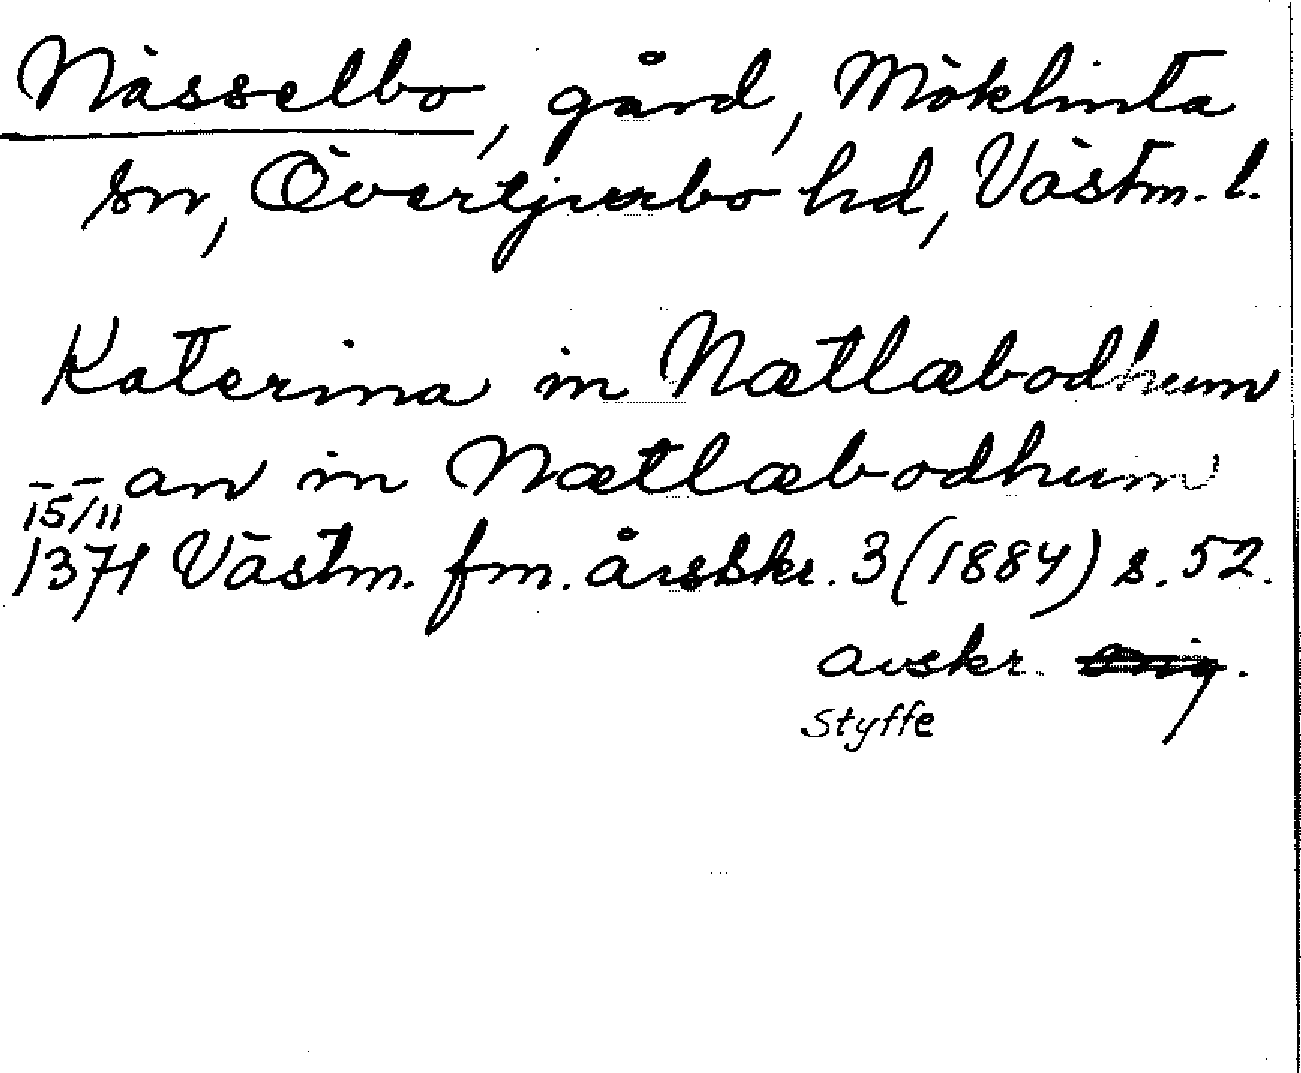 Nässelbo, gård, Möklinta
sn, Övertjurbo hd, Västm. l.
Katerina in Nætlæbodhum
– – an in Nætlæbodhum
15/11
1371 Västm. fm. årsskr. 3 (1884) s. 52.
avskr. orig.
Styffe